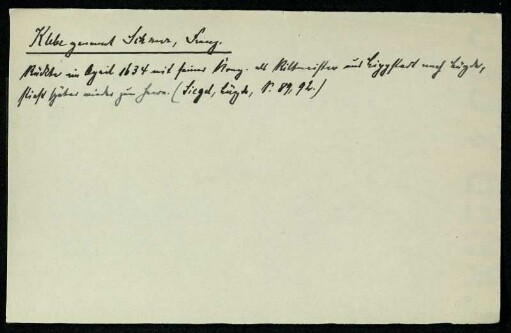 Klebe genannt Schnur, Franz.
Rückte im April 1634 mit seiner Komp. als Rittmeister aus Lippstadt nach Lügde,
stieß später wieder zum Heere. (Siegel, Lügde, S. 89, 92.)